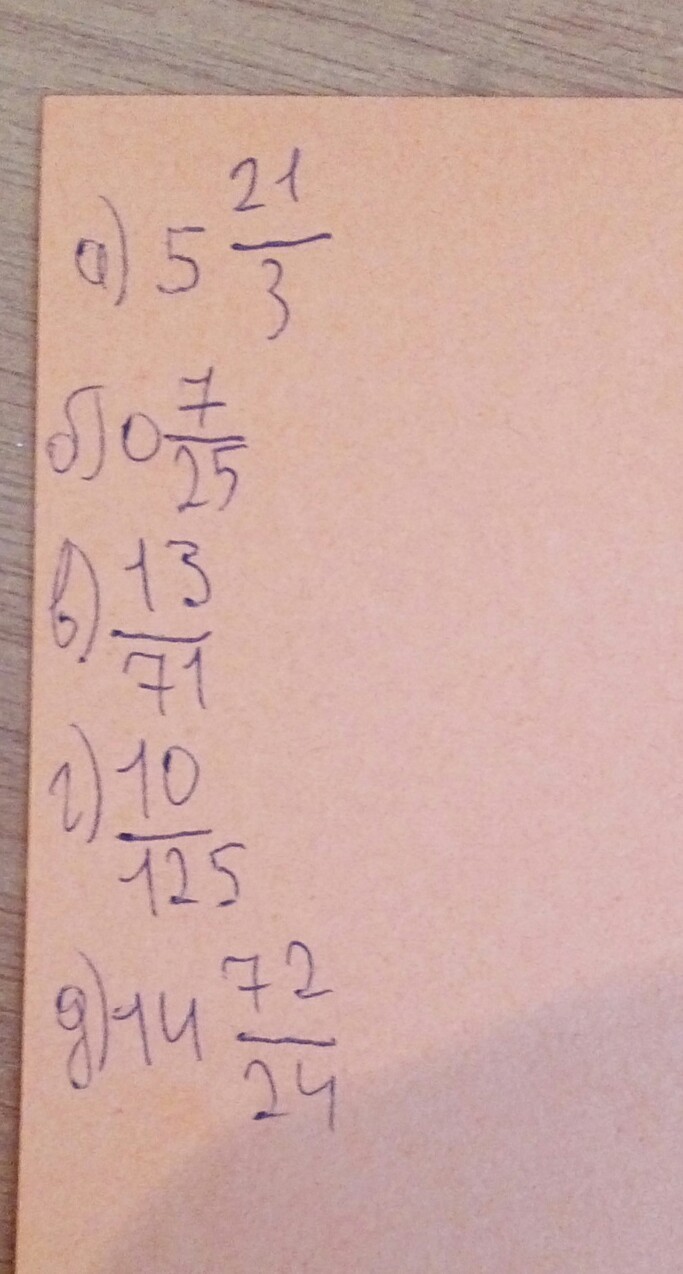 а) 5 21/3
б) 0 7/25
в) 13/71
г) 10/125
д) 14 72/24